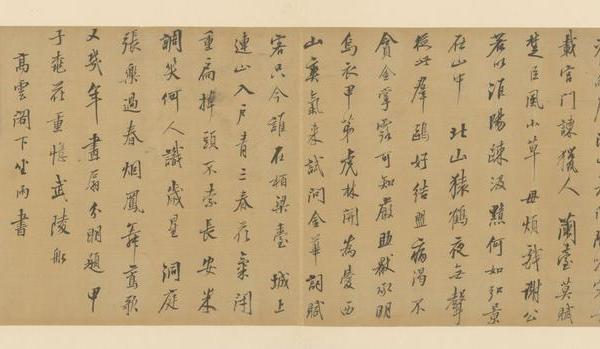 載官門諫獵人 蘭臺莫賦
楚臣風小草 毋煩戲謝公
若以淮陽疎汲黯何如弘景
在山中 北山猿鶴夜無聲
從此群鷗好結盟病渴不
貪金掌露可知嚴助厭承明
烏衣甲第虎林開為愛西
山爽氣来試問金華詞賦
客只今誰在柏梁臺 城上
連山入戶青三春花氣閉
重扃掉頭不索長安米
調笑何人識歲星 洞庭
張樂過春烟鳳舞鸞歌
又幾年 畫扇分明題甲
子桃花重憶武陵船
高雲閣下坐雨書